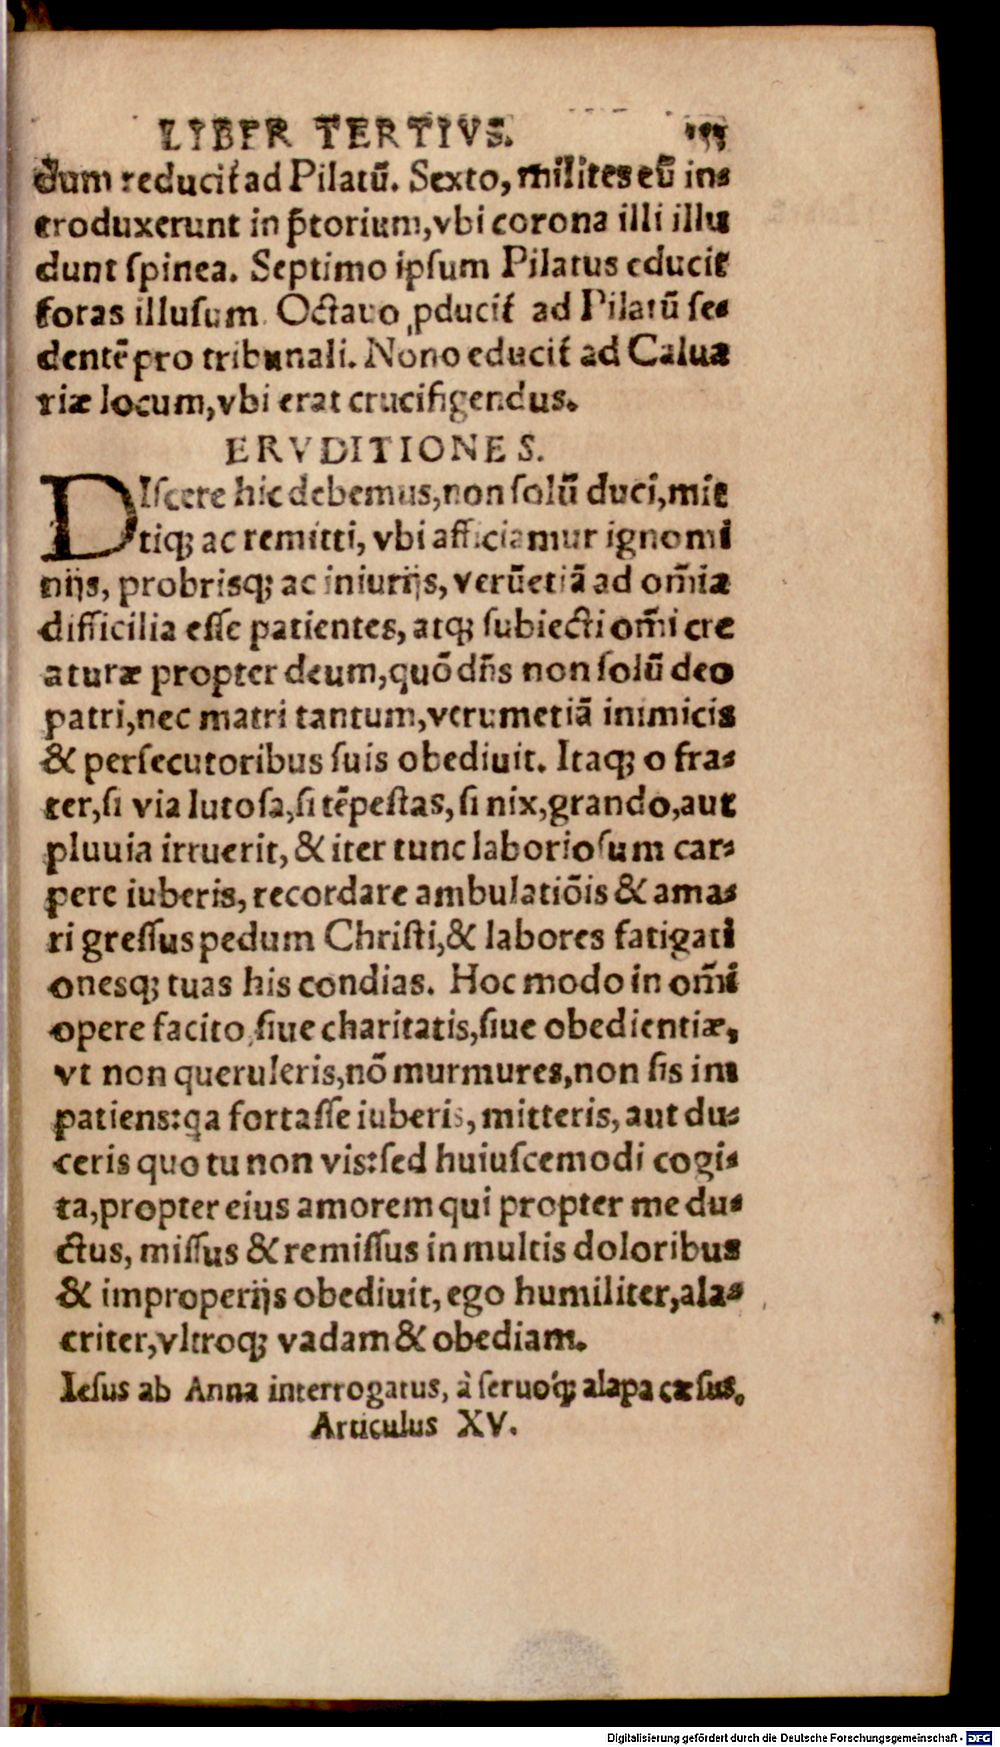 LIBER TERTIVS. 155
dum reducit̃ ad Pilatū. Sexto, milites eū in-
troduxerunt in p̃torium, vbi corona illi illu
dunt spinea. Septimo ipsum Pilatus educit
foras illusum. Octauo ꝓducit̃ ad Pilatū se-
dentē pro tribunali. Nono educit̃ ad Calua
riæ locum, vbi erat crucifigendus.
ERVDITIONES.
DIscere hic debemus, non solū duci, mit
tiq; ac remitti, vbi afficiamur ignomi
nijs, probrisq; ac iniurijs, verūetiā ad om̄ia
difficilia esse patientes, atq; subiecti om̄i cre
aturæ propter deum, quōdn̄s non solū deo
patri, nec matri tantum, verumetiā inimicis
& persecutoribus suis obediuit. Itaq; o fra-
ter, si via lutosa, si tēpestas, si nix, grando, aut
pluuia irruerit, & iter tunc laboriosum car-
pere iuberis, recordare ambulatiōis & ama-
ri gressus pedum Christi, & labores fatigati
onesq; tuas his condias. Hoc modo in om̄i
opere facito, siue charitatis, siue obedientiæ,
vt non queruleris, nō murmures, non sis im
patiens: qa fortasse iuberis, mitteris, aut du-
ceris quo tu non vis: sed huiuscemodi cogi-
ta, propter eius amorem qui propter me du-
ctus, missus & remissus in multis doloribus
& improperijs obediuit, ego humiliter, ala-
criter, vltroq; vadam & obediam.
Iesus ab Anna interrogatus, à seruóq; alapa cæsus.
Articulus XV.
Digitalisierung gefördert durch die Deutsche Forschungsgemeinschaft - DFG